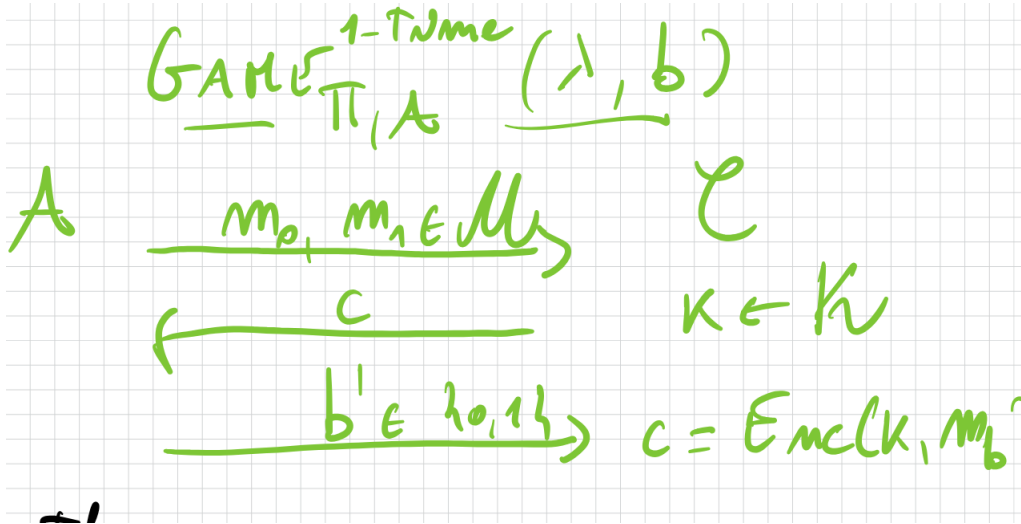 GAME^{1-Time}_{Π,A} (λ, b)
A m₀, m₁ ∈ M C
c K ← K
b' ∈ {0,1} c = Enc(K, m_b